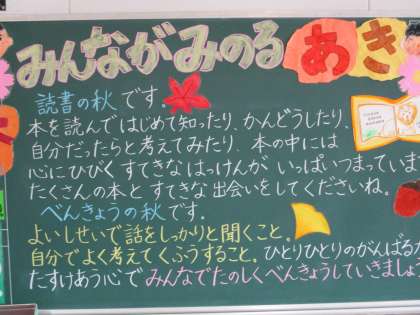 みんながみのるあき
読書の秋です。
本を読んではじめて知ったり、かんどうしたり、
自分だったらと考えてみたり、本の中には
心にひびくすてきなはっけんがいっぱいつまっていま
たくさんの本とすてきな出会いをしてくださいね。
べんきょうの秋です。
よいしせいで話をしっかりと聞くこと。
自分でよく考えてくふうすること。ひとりひとりのがんばるか
たすけあう心でみんなでたのしくべんきょうしていきましょう